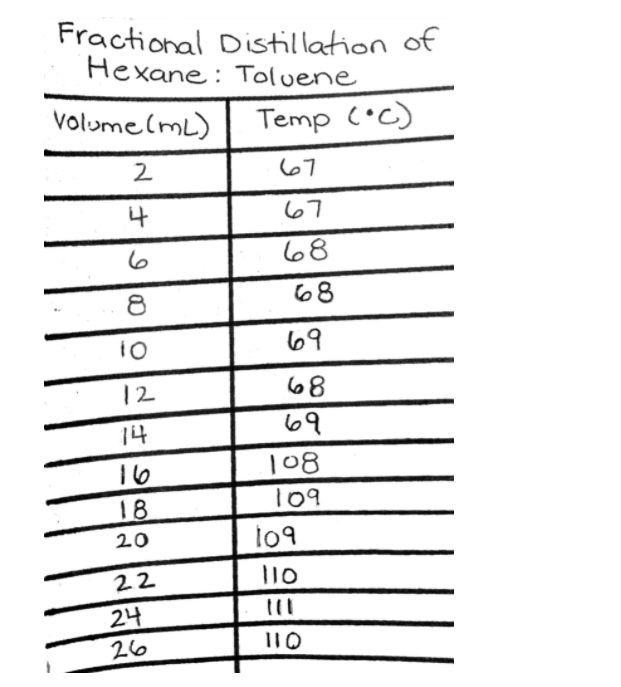 Fractional Distillation of
Hexane: Toluene
Volume (mL) Temp (°C)
2 67
4 67
6 68
8 68
10 69
12 68
14 69
16 108
18 109
20 109
22 110
24 111
26 110